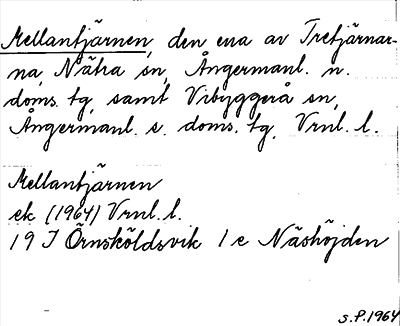 Mellantjärnen, den ena av Tretjärnar-
na, Nätra sn, Ångermanl. n.
doms. tg, samt Vibyggerå sn,
Ångermanl. s. doms. tg, Vrnl. l.
Mellantjärnen
ek (1964) Vrnl. l.
19 I Örnsköldsvik 1 e Näshöjden
S.P. 1964